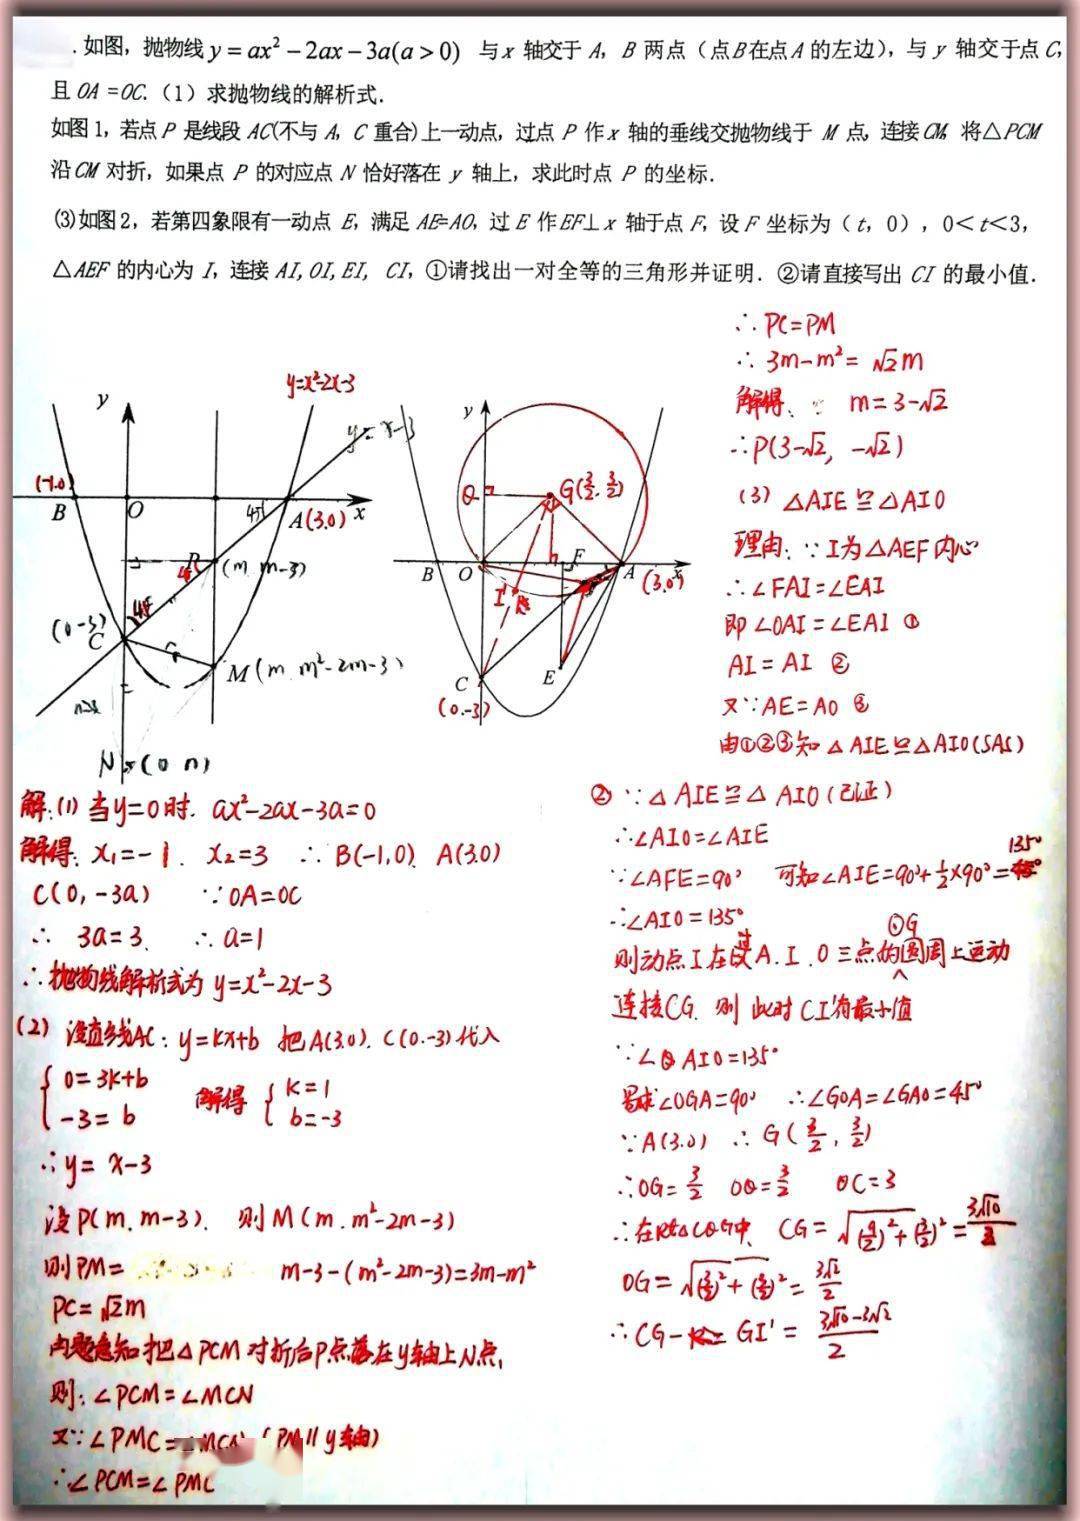 . 如图, 抛物线 y = ax² − 2ax − 3a(a > 0) 与 x 轴交于 A, B 两点（点B在点A 的左边）, 与 y 轴交于点 C,
且 OA =OC.（1）求抛物线的解析式.
如图1, 若点P 是线段 AC(不与 A, C 重合)上一动点, 过点 P 作x 轴的垂线交抛物线于 M 点, 连接CM, 将△PCM
沿CM 对折, 如果点 P 的对应点 N 恰好落在 y 轴上, 求此时点 P 的坐标.
(3)如图2, 若第四象限有一动点 E, 满足 AE=AO, 过 E 作EF⊥x 轴于点 F, 设 F 坐标为（t, 0）, 0＜t＜3,
△AEF 的内心为 I, 连接 AI, OI, EI, CI, ①请找出一对全等的三角形并证明. ②请直接写出 CI 的最小值.
y
y=x²-2x-3
y=x-3
(-1.0)
B
O
45°
A(3.0)
x
P
(m, m-3)
45°
(0 -3)
C
M(m, m²-2m-3)
N (0 n)
y
Q
G(3/2, 3/2)
B
O
F
A
x
(3.0)
I'
C
E
(0.-3)
∴ PC=PM
∴ 3m-m²= √2m
解得: m=3-√2
∴P(3-√2, -√2)
(3) △AIE≌△AIO
理由: ∵I为△AEF内心
∴∠FAI=∠EAI
即∠OAI=∠EAI ①
AI=AI ②
又∵AE=AO ③
由①②③知△AIE≌△AIO(SAS)
解:(1) 当y=0时. ax²-2ax-3a=0
解得: x₁=-1. x₂=3 ∴B(-1,0). A(3.0)
C(0,-3a) ∵OA=OC
∴ 3a=3. ∴a=1
∴抛物线解析式为 y=x²-2x-3
(2) 设直线AC: y=kx+b 把A(3.0). C(0.-3)代入
{ 0=3k+b 解得 { k=1
-3=b b=-3
∴y= x-3
设P(m, m-3). 则M(m, m²-2m-3)
则PM= m-3-(m²-2m-3)=3m-m²
PC=√2m
由题意知把△PCM对折后P点落在y轴上N点,
则: ∠PCM=∠MCN
又∵∠PMC=∠MCN (PM∥y轴)
∴∠PCM=∠PMC
② ∵△AIE≌△AIO(已证)
∴∠AIO=∠AIE
∵∠AFE=90° 可知∠AIE=90°+½×90°=135°
∴∠AIO=135°
则动点I在过A.I.O三点的⊙G圆周上运动
连接CG. 则此时CI有最小值
∵∠AIO=135°
易求∠OGA=90° ∴∠GOA=∠GAO=45°
∵A(3.0) ∴G(3/2, 3/2)
∴QG=3/2 OQ=3/2 OC=3
∴在Rt△CQG中, CG=√((9/2)²+(3/2)²)=3√10/2
OG=√((3/2)²+(3/2)²)=3√2/2
∴CG-GI'=(3√10-3√2)/2